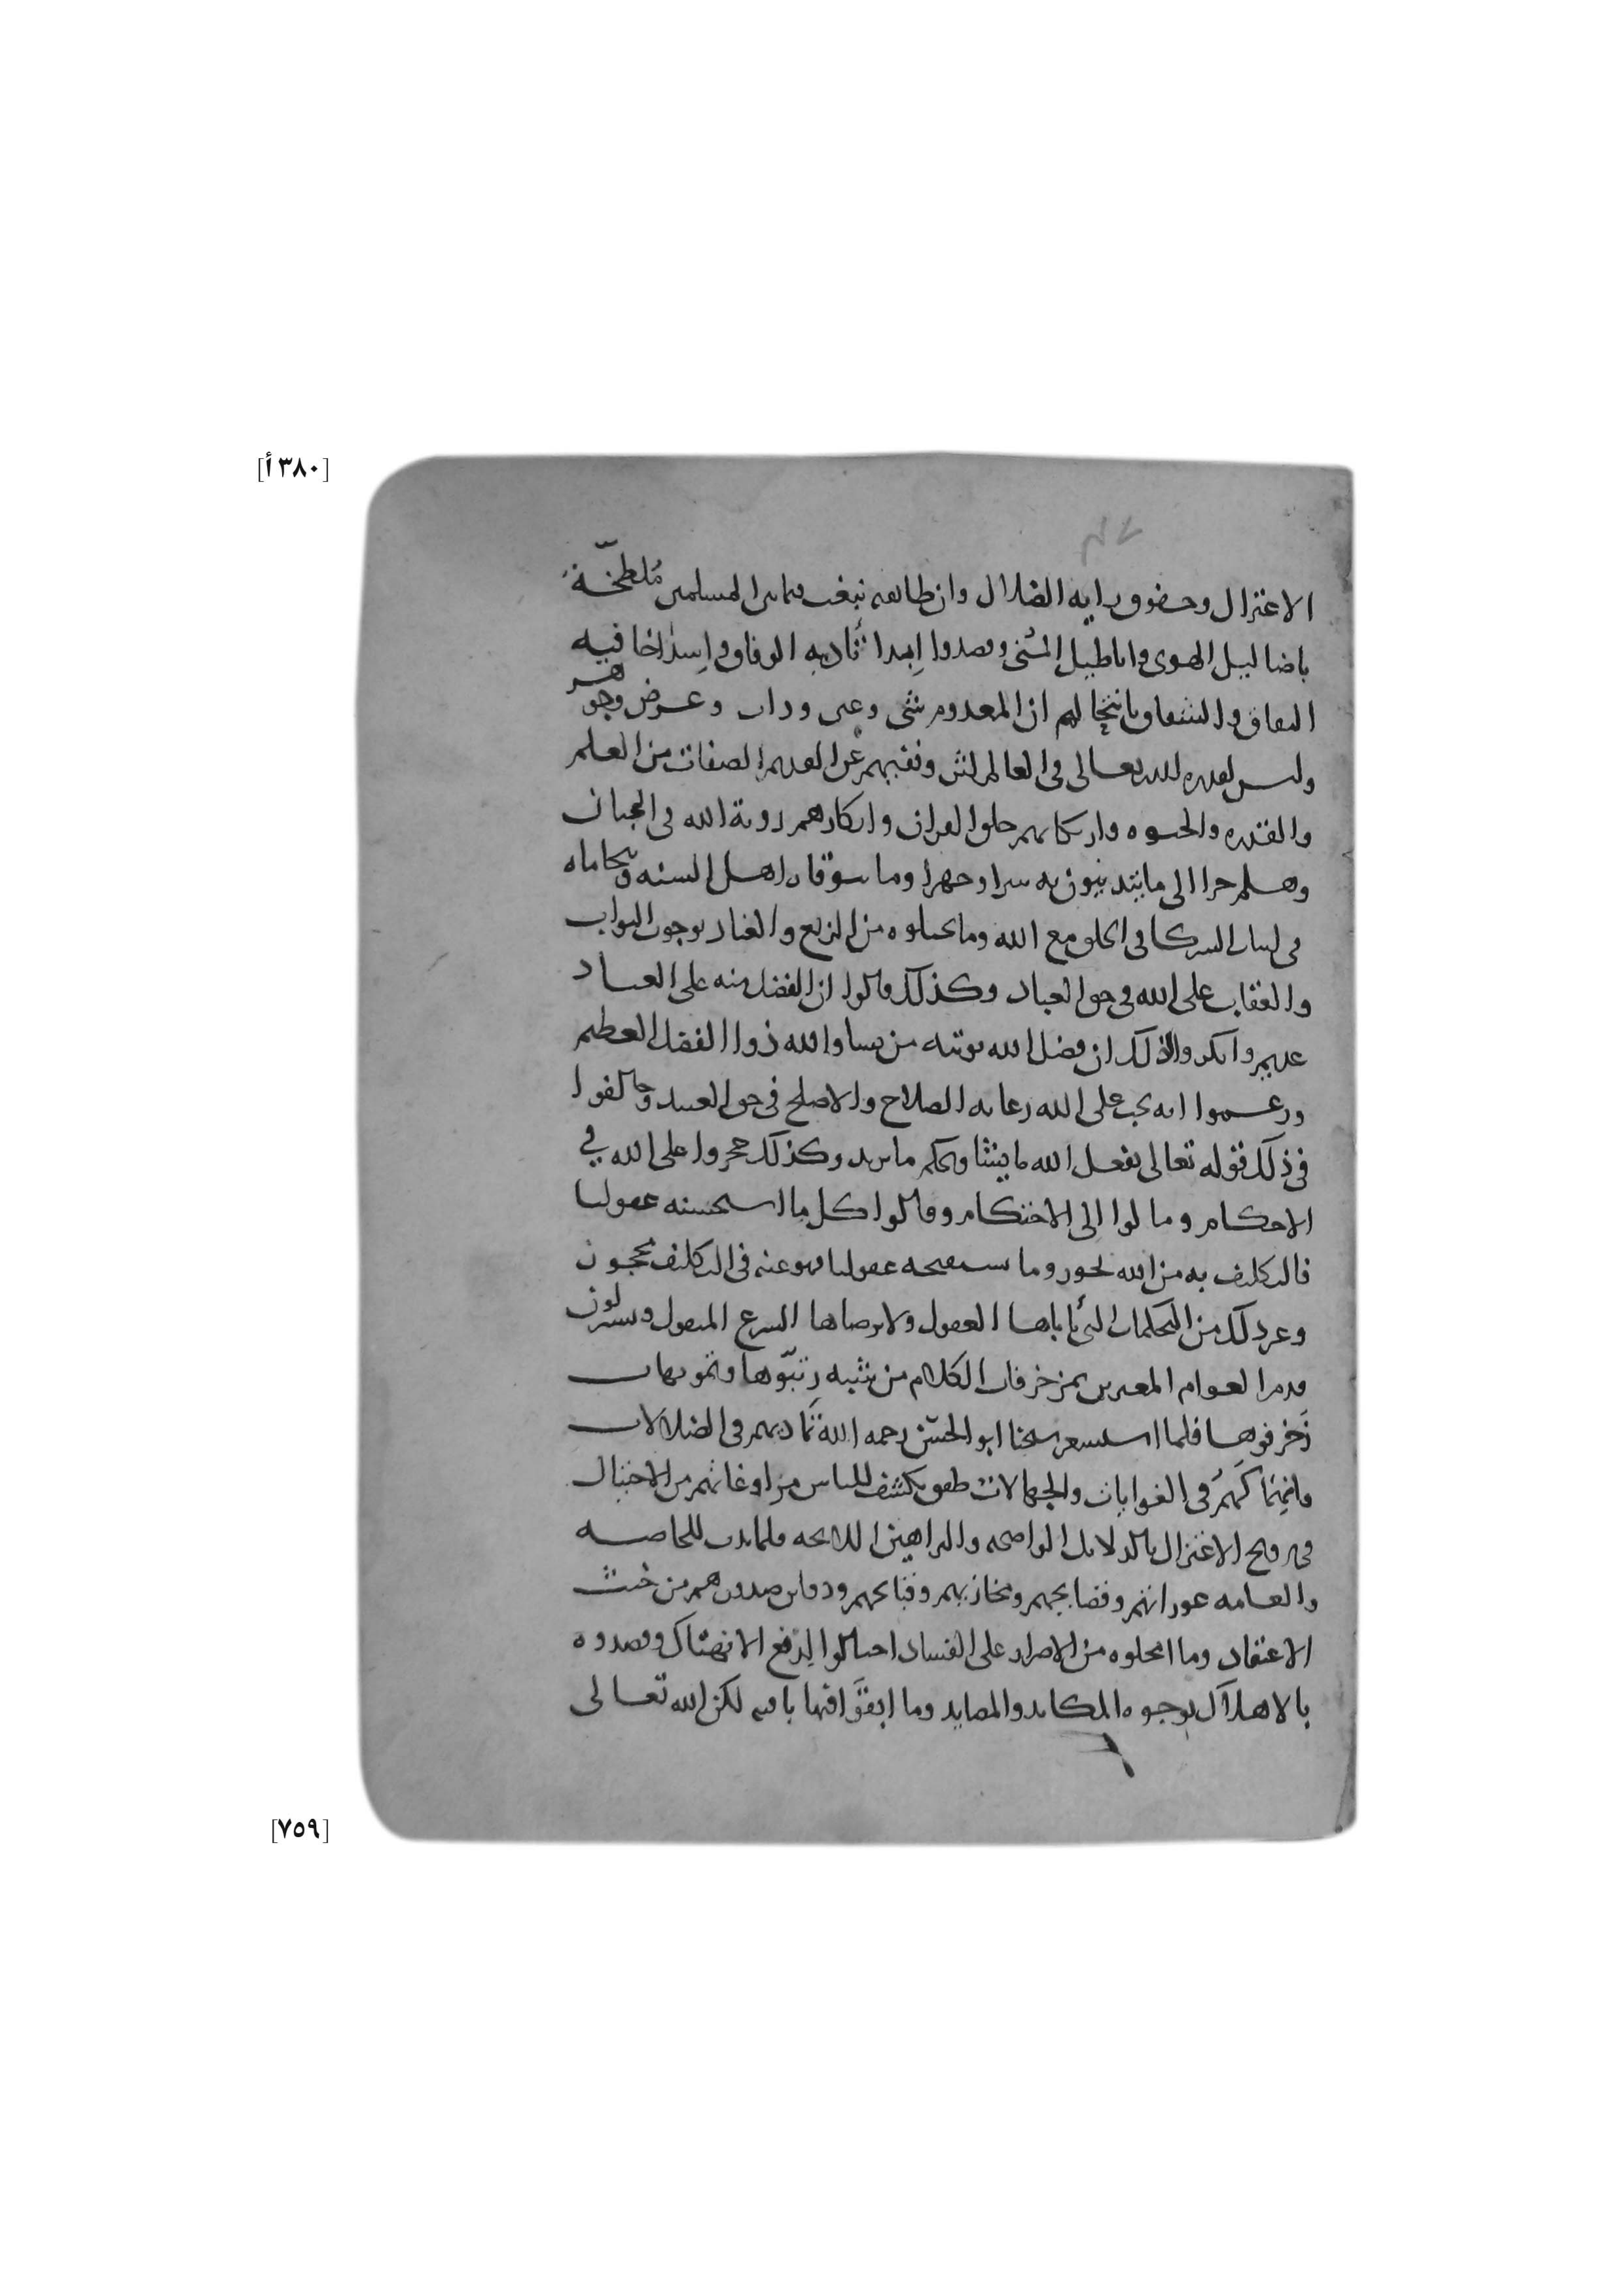 [٣٨٠ أ]
الاعتزال وخفوق راية الضلال وان طائفة نبغت فيما بين المسلمين مُلطخةً
باضاليل الهوى واباطيل المنى وقصدوا ابدا الوفاق و فيه
النفاق والشقاق بانتحالهم ان المعدوم شي وعين وذات وعرض وجوهر
وليس لقدرة الله تعالى في العالم اثر ونفيهم عن القديم الصفات من العلم
والقدره والحيوه وارتكابهم خلق القران وانكارهم روية الله في الجنان
وهلم جرا الى ما يتدينون به سرا وجهرا وما اهل السنه
في اثبات الشركا في الخلق مع الله وما من الزيغ والعناد بوجوب الثواب
والعقاب على الله في حق العباد وكذلك قالوا ان الفضل منه على العباد
عليهم وانكروا لذلك ان فضل الله يوتيه من يشا والله ذوا الفضل العظيم
وزعموا انه يجب على الله رعاية الصلاح والاصلح في حق العبيد وخالفوا
في ذلك قوله تعالى يفعل الله ما يشا ويحكم ما يريد وكذلك حجروا على الله في
الاحكام ومالوا الى الاحتكام وقالوا كل ما استحسنه عقولنا
فالتكليف به من الله يجوز وما ستقبحه عقولنا فهو عنه في التكليف محجوز
وغير ذلك من التحكمات التي تاباها العقول ولا يرضاها الشرع المنقول ويستزلون
قدم العوام المغترين بمزخرفات الكلام من شبه رتبّوها وتمويهات
زَخرفوها فلما استشعر شيخنا ابو الحسن رحمه الله تماديهم في الضلالات
وانهماكهم في الغوايات والجهالات طفق يكشف للناس من الاختيال
في ترويج الاعتزال بالدلايل الواضحه والبراهين اللايحه فلما بدت للخاصه
والعامه عوراتهم وفضايحهم ومخازيهم وقبايحهم ودفاين صدورهم من خبث
الاعتقاد وما انتحلوه من الاصرار على الفساد احتالوا لدفع الانهتاك وقصدوه
بالاهلاك بوجوه المكايد والمصايد وما ابقوا فيها باقيه لكن الله تعالى
[٧٥٩]